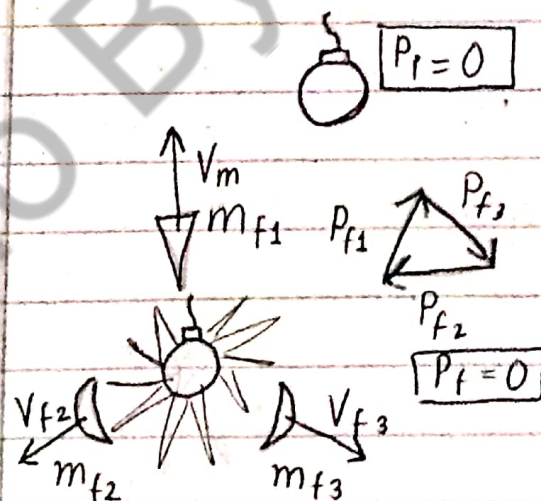 P_i = 0
V_m
m_f1
P_f1
P_f3
P_f2
P_f = 0
V_f2
V_f3
m_f2
m_f3